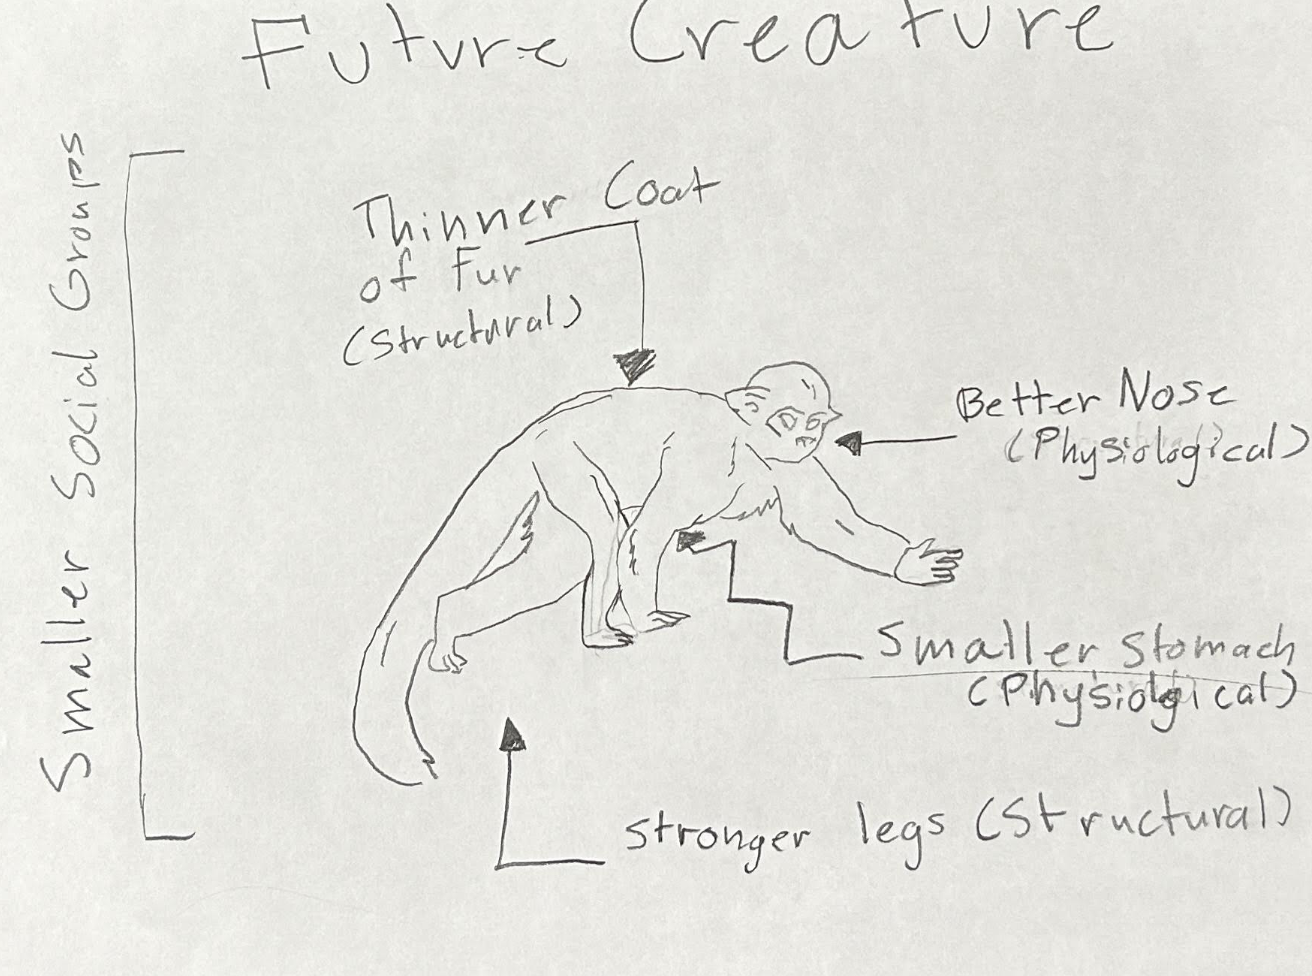 Future Creature
Smaller Social Groups
Thinner Coat
of Fur
(Structural)
Better Nose
(Physiological)
Smaller Stomach
(Physiolgical)
Stronger legs (Structural)